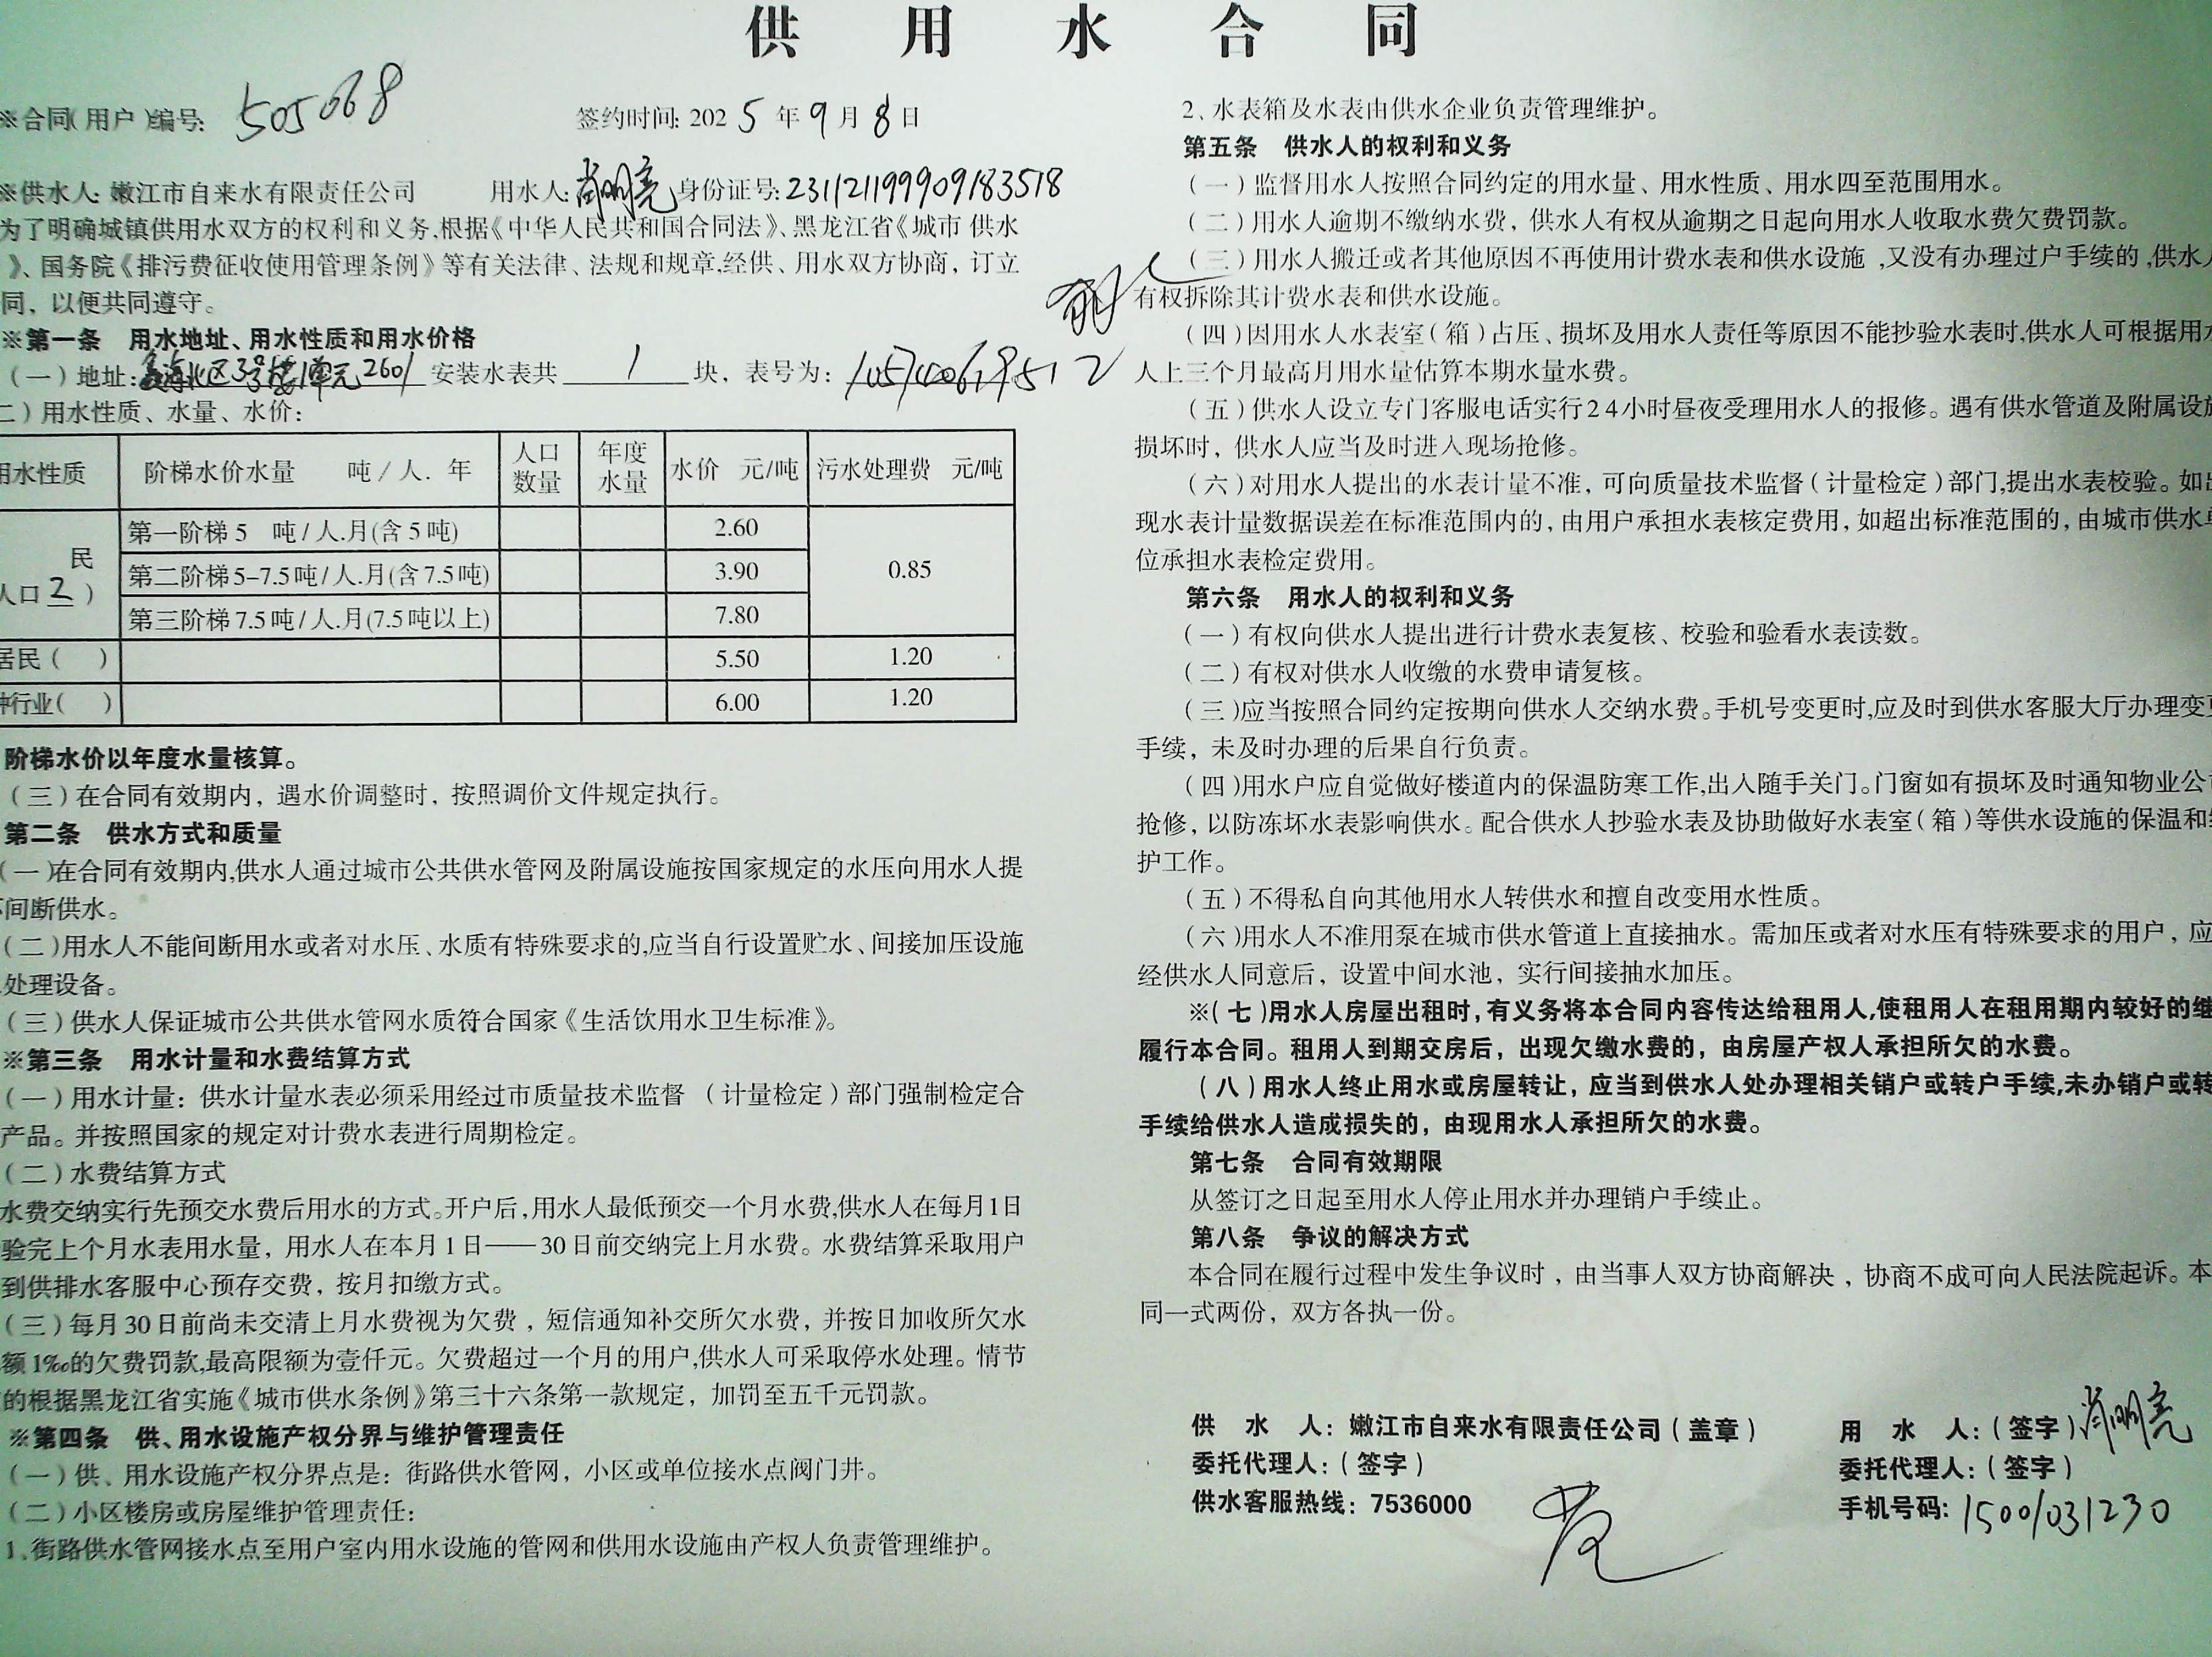 供用水合同
※合同(用户)编号: 505068 签约时间: 2025年9月8日
※供水人: 嫩江市自来水有限责任公司 用水人: 肖明亮 身份证号: 231121199909183518
为了明确城镇供用水双方的权利和义务,根据《中华人民共和国合同法》、黑龙江省《城市 供水
》、国务院《排污费征收使用管理条例》等有关法律、法规和规章,经供、用水双方协商，订立
同，以便共同遵守。
※第一条 用水地址、用水性质和用水价格
(一)地址: 北区3号楼1单元2601 安装水表共 1 块，表号为:
二)用水性质、水量、水价:
用水性质 阶梯水价水量 吨/人. 年 人口数量 年度水量 水价 元/吨 污水处理费 元/吨
民
人口2)
第一阶梯 5 吨/人.月(含5吨) 2.60 0.85
第二阶梯 5-7.5吨/人.月(含7.5吨) 3.90
第三阶梯 7.5吨/人.月(7.5吨以上) 7.80
居民( ) 5.50 1.20
种行业( ) 6.00 1.20
阶梯水价以年度水量核算。
(三)在合同有效期内，遇水价调整时，按照调价文件规定执行。
第二条 供水方式和质量
(一)在合同有效期内,供水人通过城市公共供水管网及附属设施按国家规定的水压向用水人提
不间断供水。
(二)用水人不能间断用水或者对水压、水质有特殊要求的,应当自行设置贮水、间接加压设施
处理设备。
(三)供水人保证城市公共供水管网水质符合国家《生活饮用水卫生标准》。
※第三条 用水计量和水费结算方式
(一)用水计量：供水计量水表必须采用经过市质量技术监督 (计量检定)部门强制检定合
产品。并按照国家的规定对计费水表进行周期检定。
(二)水费结算方式
水费交纳实行先预交水费后用水的方式。开户后,用水人最低预交一个月水费,供水人在每月1日
验完上个月水表用水量，用水人在本月1日——30日前交纳完上月水费。水费结算采取用户
到供排水客服中心预存交费，按月扣缴方式。
(三)每月30日前尚未交清上月水费视为欠费，短信通知补交所欠水费，并按日加收所欠水
额1‰的欠费罚款,最高限额为壹仟元。欠费超过一个月的用户,供水人可采取停水处理。情节
的根据黑龙江省实施《城市供水条例》第三十六条第一款规定，加罚至五千元罚款。
※第四条 供、用水设施产权分界与维护管理责任
(一)供、用水设施产权分界点是：街路供水管网，小区或单位接水点阀门井。
(二)小区楼房或房屋维护管理责任:
1、街路供水管网接水点至用户室内用水设施的管网和供用水设施由产权人负责管理维护。
2、水表箱及水表由供水企业负责管理维护。
第五条 供水人的权利和义务
(一)监督用水人按照合同约定的用水量、用水性质、用水四至范围用水。
(二)用水人逾期不缴纳水费，供水人有权从逾期之日起向用水人收取水费欠费罚款。
(三)用水人搬迁或者其他原因不再使用计费水表和供水设施,又没有办理过户手续的,供水人
有权拆除其计费水表和供水设施。
(四)因用水人水表室(箱)占压、损坏及用水人责任等原因不能抄验水表时,供水人可根据用水
人上三个月最高月用水量估算本期水量水费。
(五)供水人设立专门客服电话实行24小时昼夜受理用水人的报修。遇有供水管道及附属设施
损坏时，供水人应当及时进入现场抢修。
(六)对用水人提出的水表计量不准，可向质量技术监督(计量检定)部门,提出水表校验。如出
现水表计量数据误差在标准范围内的，由用户承担水表核定费用，如超出标准范围的，由城市供水单
位承担水表检定费用。
第六条 用水人的权利和义务
(一)有权向供水人提出进行计费水表复核、校验和验看水表读数。
(二)有权对供水人收缴的水费申请复核。
(三)应当按照合同约定按期向供水人交纳水费。手机号变更时,应及时到供水客服大厅办理变更
手续，未及时办理的后果自行负责。
(四)用水户应自觉做好楼道内的保温防寒工作,出入随手关门。门窗如有损坏及时通知物业公司
抢修，以防冻坏水表影响供水。配合供水人抄验水表及协助做好水表室(箱)等供水设施的保温和维
护工作。
(五)不得私自向其他用水人转供水和擅自改变用水性质。
(六)用水人不准用泵在城市供水管道上直接抽水。需加压或者对水压有特殊要求的用户，应
经供水人同意后，设置中间水池，实行间接抽水加压。
※(七)用水人房屋出租时,有义务将本合同内容传达给租用人,使租用人在租用期内较好的继
履行本合同。租用人到期交房后，出现欠缴水费的，由房屋产权人承担所欠的水费。
(八)用水人终止用水或房屋转让，应当到供水人处办理相关销户或转户手续,未办销户或转
手续给供水人造成损失的，由现用水人承担所欠的水费。
第七条 合同有效期限
从签订之日起至用水人停止用水并办理销户手续止。
第八条 争议的解决方式
本合同在履行过程中发生争议时，由当事人双方协商解决，协商不成可向人民法院起诉。本
同一式两份，双方各执一份。
供 水 人：嫩江市自来水有限责任公司(盖章) 用 水 人：(签字) 肖明亮
委托代理人：(签字) 委托代理人：(签字)
供水客服热线：7536000 手机号码: 15001031230